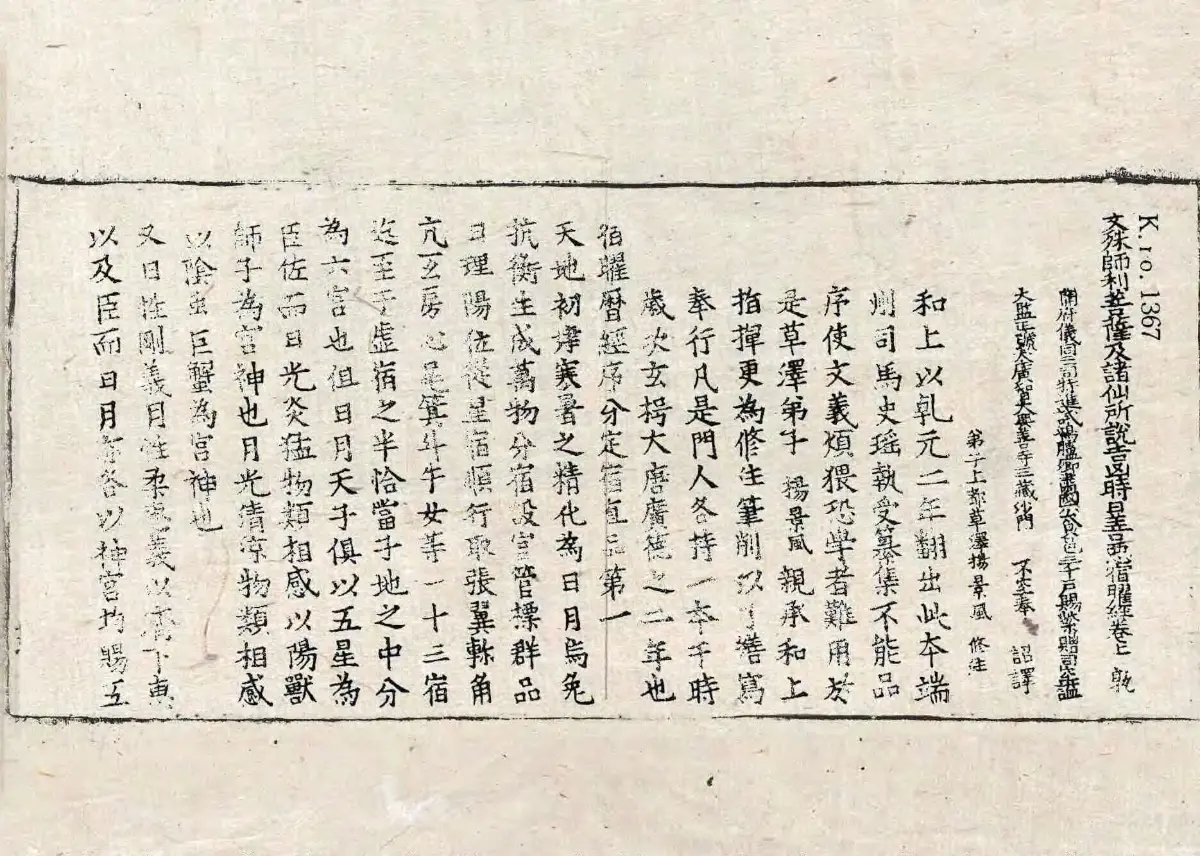 K no. 1367
文殊師利菩薩及諸仙所說吉凶時日善惡宿曜經卷上 執
開府儀同三司特進試鴻臚卿肅國公食邑三千戶賜紫贈司空謚
大鑒正號大廣智大興善寺三藏沙門 不空奉 詔譯
弟子上都草澤楊景風 修注
和上以乹元二年翻出此本端
州司馬史瑶執受纂集不能品
序使文義煩猥恐學者難用於
是草澤弟子 楊景風 親承和上
指揮更為修注筆削以了繕寫
奉行凡是門人各持一本于時
歲次玄枵大唐廣德之二年也
宿曜曆經序分定宿直品第一
天地初建寒暑之精化為日月烏兔
抗衡生成萬物分宿設宮管標群品
日理陽位從星宿順行取張翼軫角
亢互房心尾箕斗牛女等一十三宿
迄至于虛宿之半恰當子地之中分
為六宮也但日月天子俱以五星為
臣佐而日光炎猛物類相感以陽獸
師子為宮神也月光清凉物類相感
以陰虫巨蟹為宮神也
又日性剛義月性柔惠義以濟下惠
以及臣而日月亦各以神宮均賜五